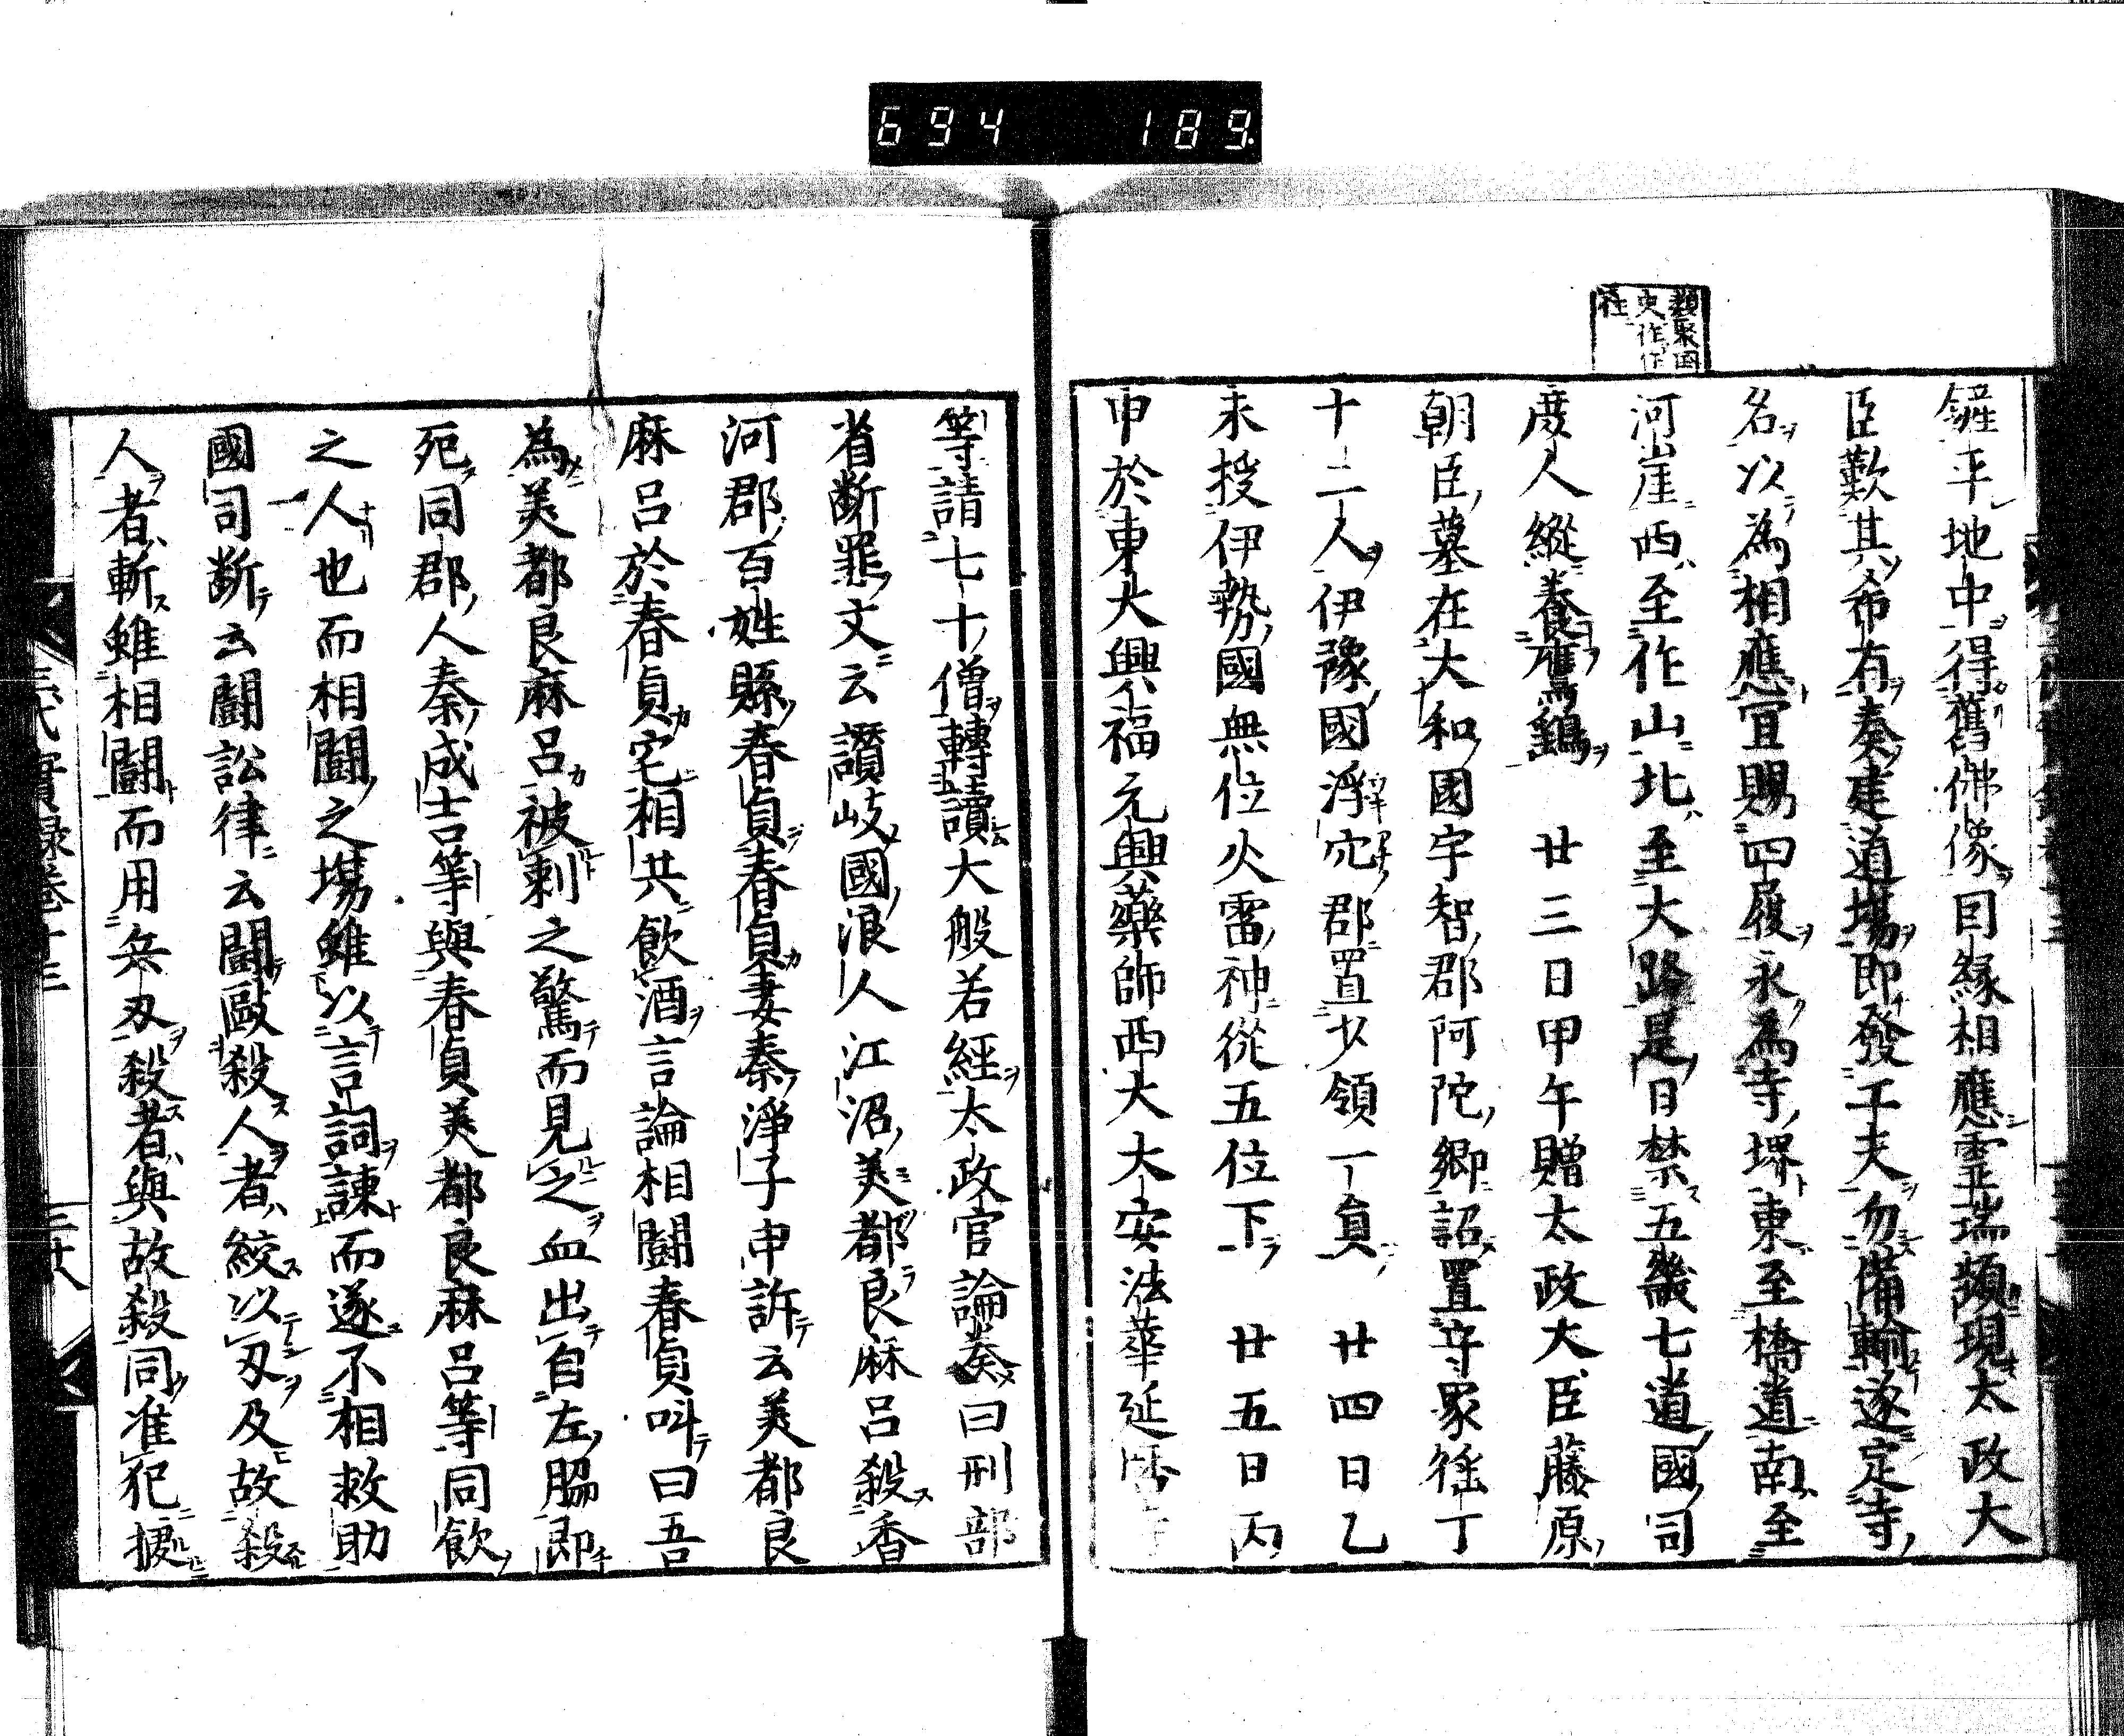 694 189.
類聚国
史作作
往
鏟平地中得舊佛像因緣相應霊瑞頻現太政大
臣歎其希有奏建道場即發工夫勿備輸遂定寺
名以為相應宜賜四履永為寺堺東至橋道南至
河崖西至作山北至大路是日禁五畿七道國司
庶人縱養鷹鷂　廿三日甲午贈太政大臣藤原
朝臣墓在大和國宇智郡阿陀郷詔置守冢徭丁
十二人伊豫國浮穴郡置少領一員　廿四日乙
未授伊勢國無位火雷神從五位下　廿五日丙
申於東大興福元興藥師西大大安法華延暦寺
等請七十僧轉讀大般若經太政官論奏曰刑部
省断罪文云讃岐國浪人江沼美都良麻呂殺香
河郡百姓縣春貞春貞妻秦淨子申訴云美都良
麻呂於春貞宅相共飲酒言論相闘春貞叫曰吾
為美都良麻呂被刺之驚而見之血出自左脇即
死同郡人秦成吉等與春貞美都良麻呂等同飲
之人也而相闘之場雖以言詞諌而遂不相救助
國司断云闘訟律云闘毆殺人者絞以刃及故殺
人者斬雖相闘而用兵刃殺者與故殺同准犯據
三代實録巻十三
三十八